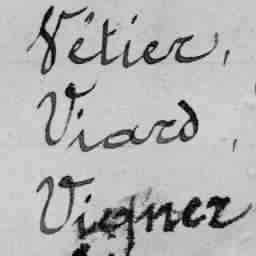 Vétier,
Viard,
Vigner